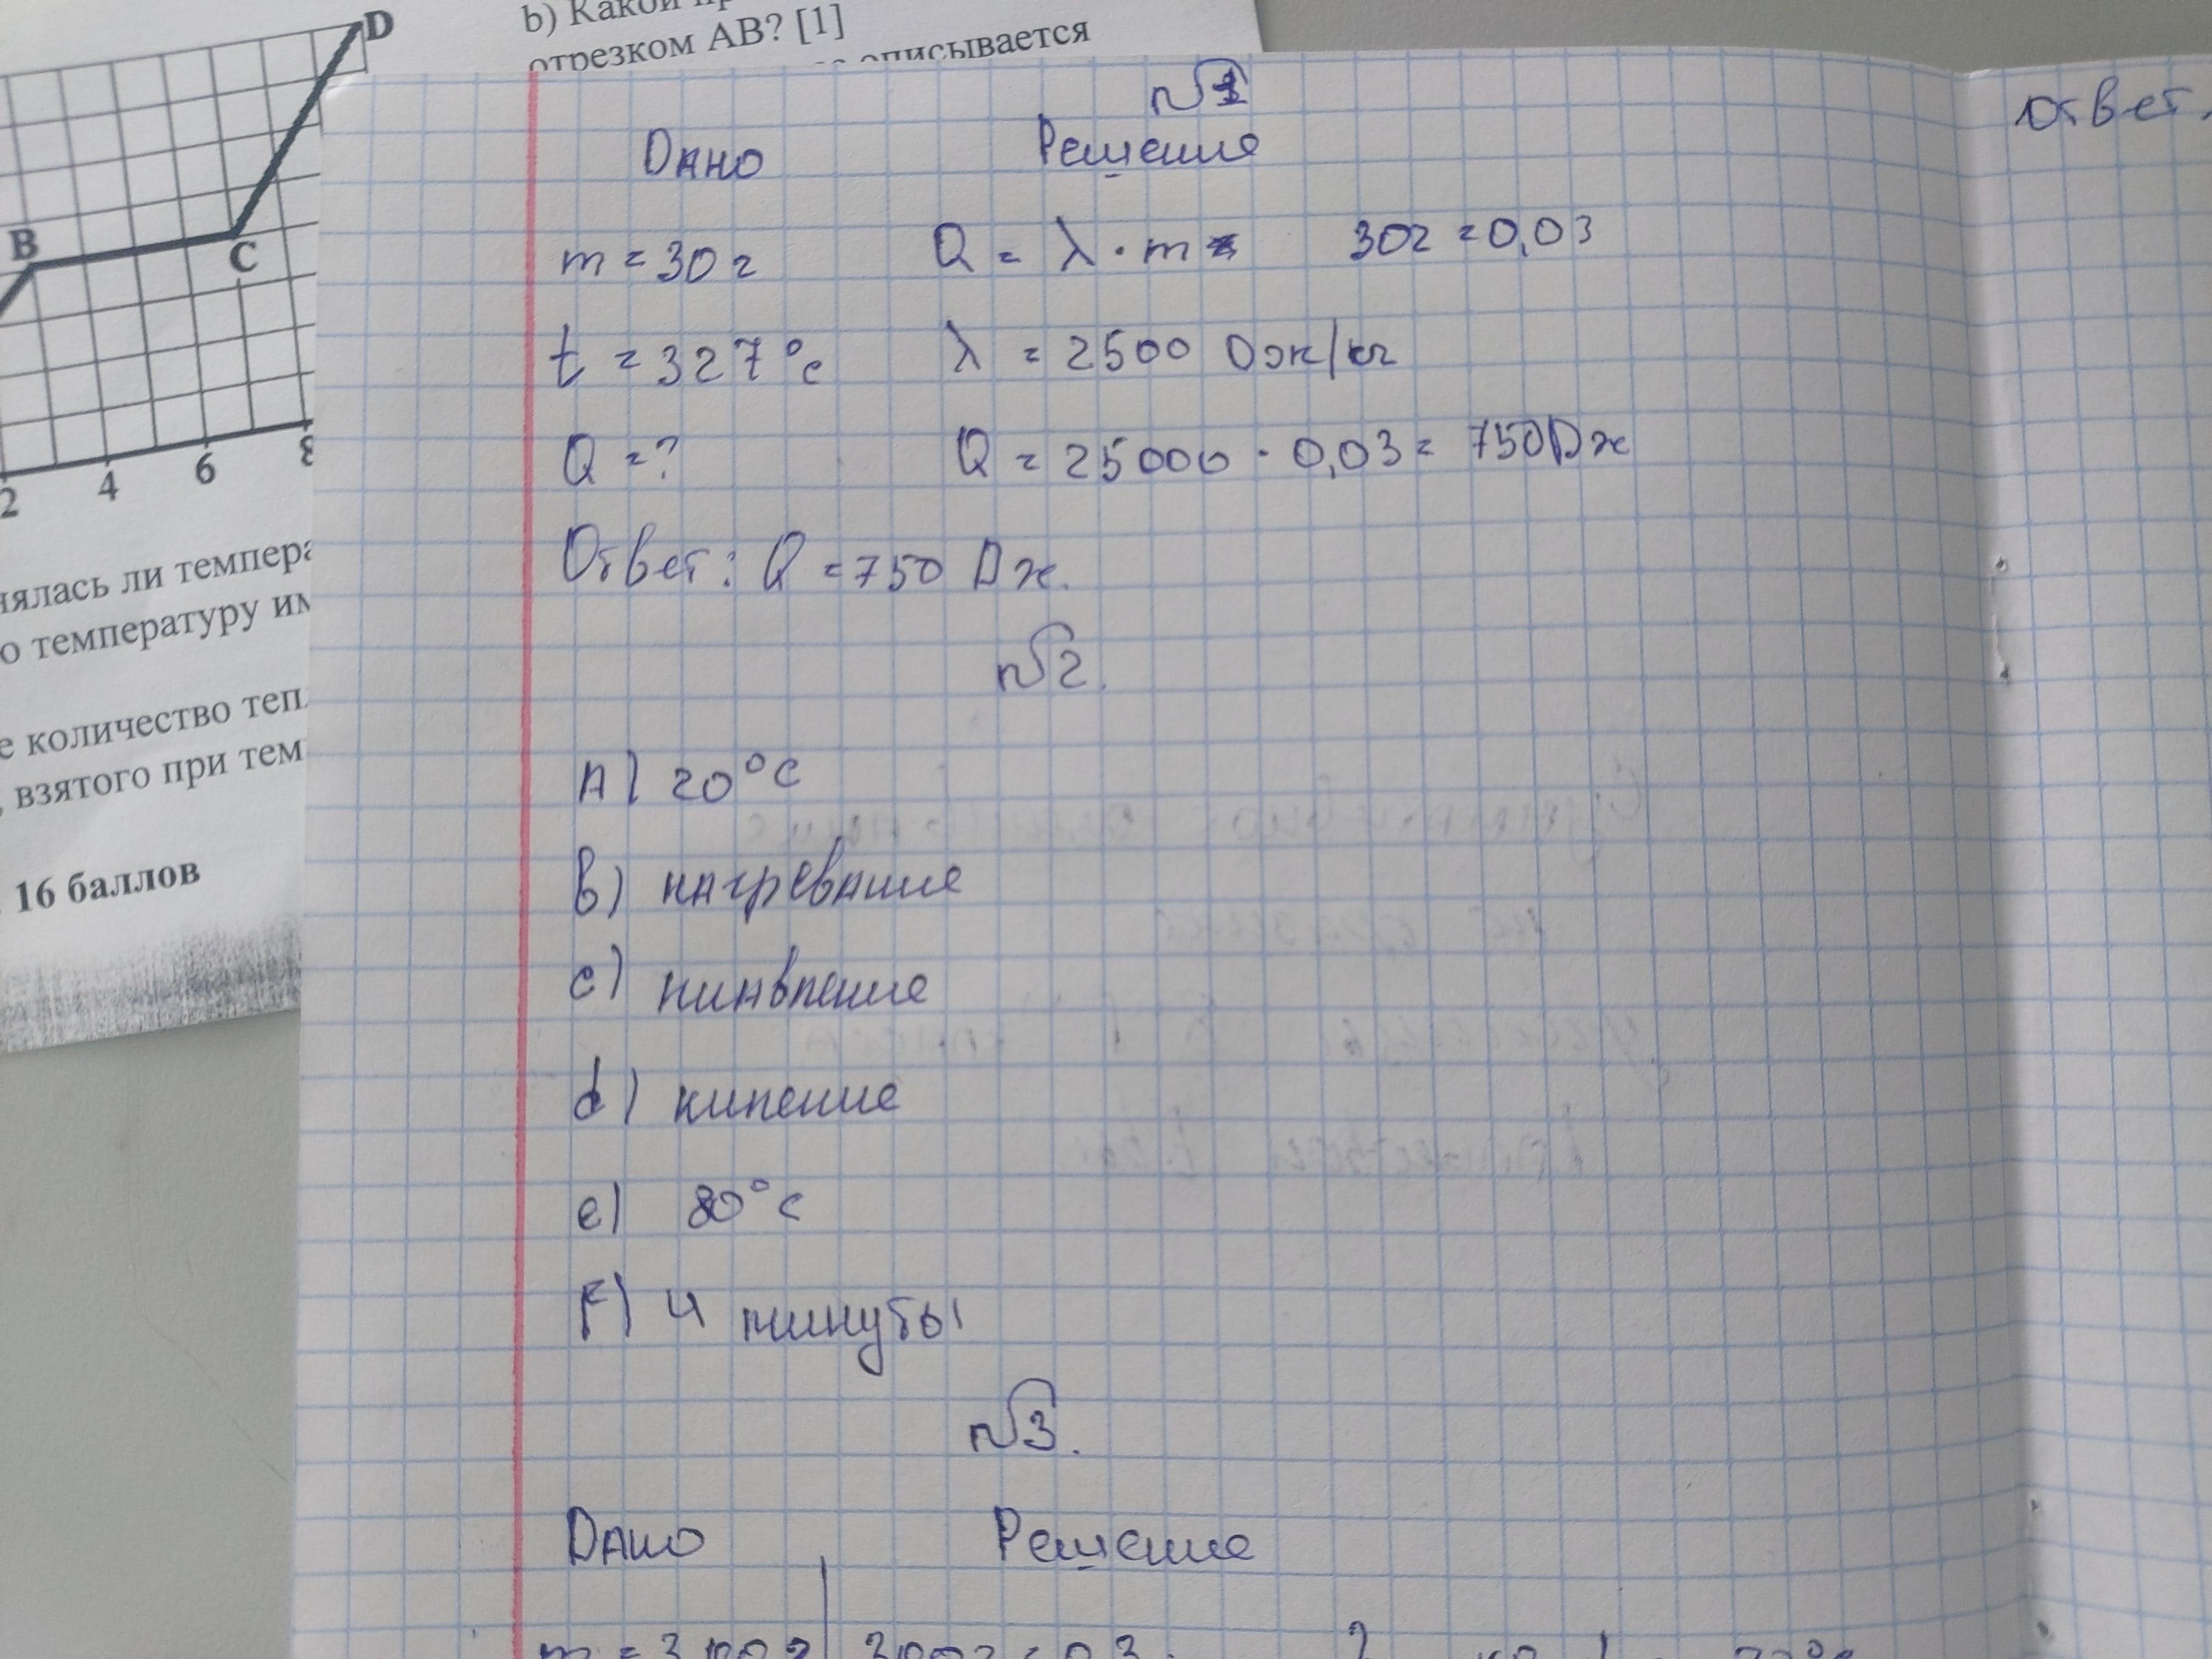 b) Какой
отрезком АВ? [1]
описывается
D
B
C
2 4 6 8
нялась ли темпера
о температуру им
е количество теп
, взятого при тем
16 баллов
Ответ
№1
Дано Решение
m = 30 г Q = λ · m 30г = 0,03
t = 327 °c λ = 2500 Дж/кг
Q = ? Q = 25000 · 0,03 = 750Дж
Ответ: Q = 750 Дж.
№2.
A) 20°C
b) нагревание
c)
d) кипение
e) 80°C
F) 4 минуты
№3.
Дано Решение